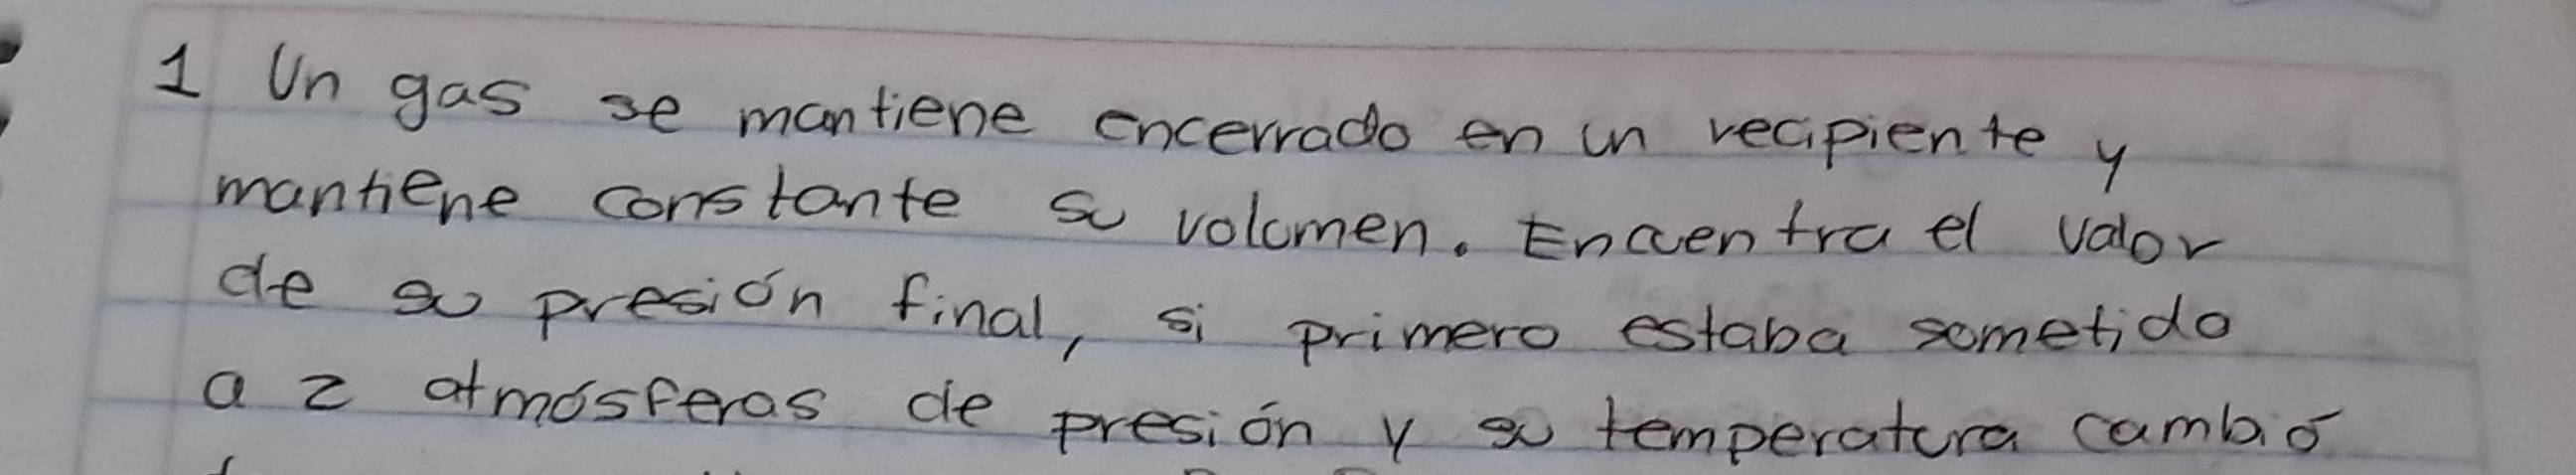 1 Un gas se mantiene encerrado en un recipiente y
mantiene constante su volumen. Encuentra el valor
de su presión final, si primero estaba sometido
a 2 atmósferas de presión y su temperatura cambió